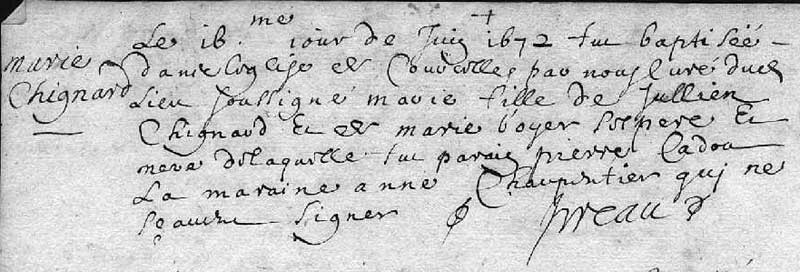 Le 16.me iour de Juin 1672 fut baptiséé
marie
Chignard
dans leglise de Courcelles par nous Curé dud
Lieu soussigné marie fille de Jullien
Chignard Et de marie boyer ses pere Et
mere de laquelle fut parain pierre Cadou
La maraine anne Charpentier qui ne
signer